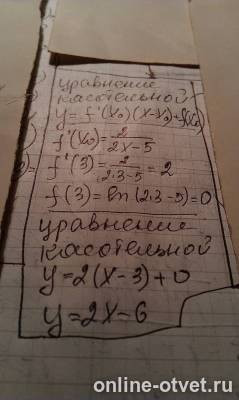 уравнение
касательной
y = f'(x₀)(x-x₀)+f(x₀)
f'(x₀) = 2/(2x-5)
f'(3) = 2/(2·3-5) = 2
f(3) = ln(2·3-5) = 0
уравнение
касательной
y = 2(x-3) + 0
y = 2x-6
online-otvet.ru